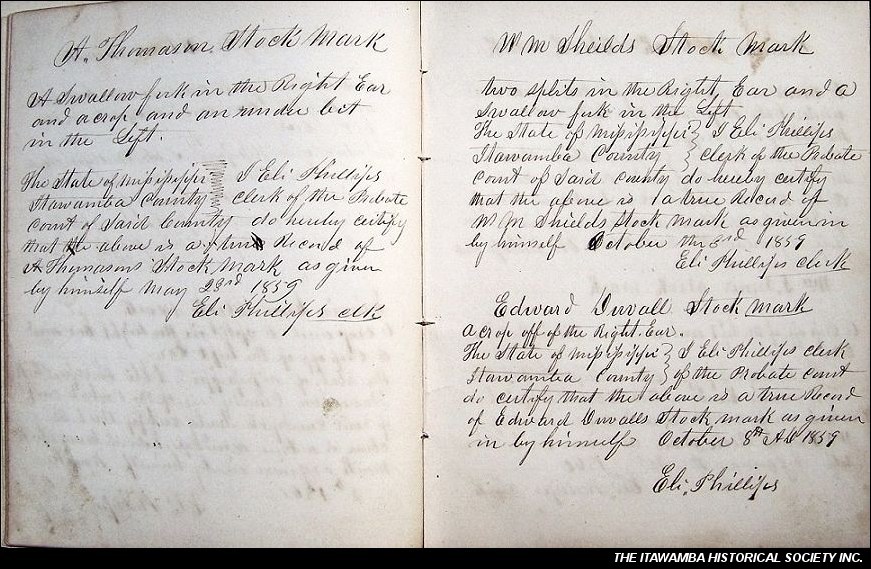 A. Thomason Stock Mark
A Swallow fork in the Right Ear
and a crop and an under bit
in the Left.
The State of Mississippi } I Eli Phillips
Itawamba County } clerk of the Probate
court of Said County do hereby certify
that the above is a true Record of
A Thomasons Stock Mark as given
by himself May 23rd 1859
Eli Phillips clk
W M Sheilds Stock Mark
two splits in the Right, Ear and a
Swallow fork in the Left
The State of Mississippi } I Eli Phillips
Itawamba County } clerk of the Probate
court of Said county do hereby certify
that the above is a true Record of
W M Shields Stock Mark as given in
by himself October the 3rd 1859
Eli Phillips clerk
Edward Duvall Stock Mark
A crop off of the Right. Ear.
The State of Mississippi } I Eli Phillips clerk
Itawamba County } of the Probate court
do certify that the above is a true Record
of Edward Duvalls Stock mark as given
in by himself October 8th AD 1859
Eli, Phillips
THE ITAWAMBA HISTORICAL SOCIETY INC.